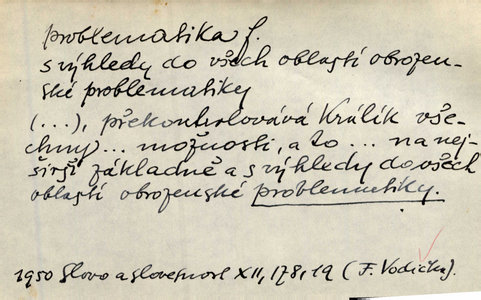 problematika f.
s výhledy do všech oblastí obrozen-
ské problematiky
(...), překontrolovává Králík vše-
chny ... možnosti, a to ... na nej-
širší základně a s výhledy do všech
oblastí obrozenské problematiky.
1950 Slovo a slovesnost XII, 178, 19 (F. Vodička).